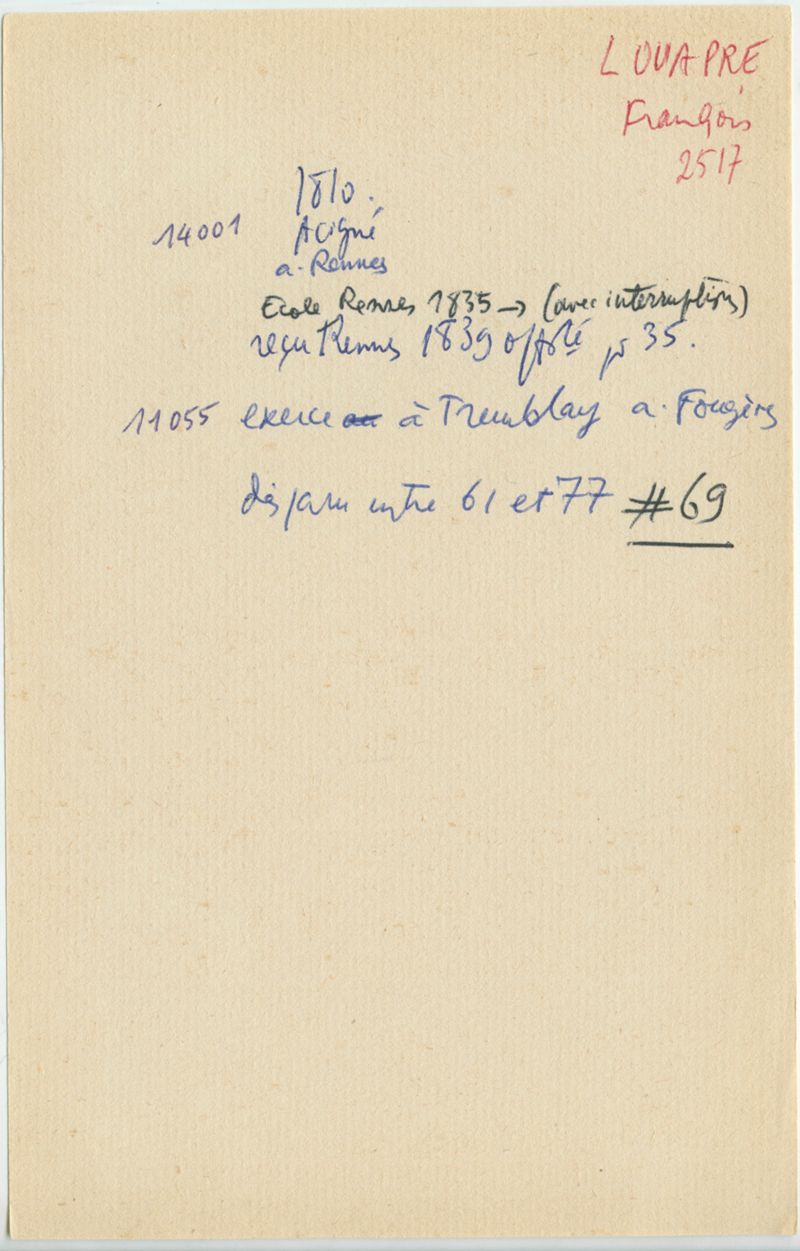 LOUAPRE
François
2517
1810.
14001 Acigné
a. Rennes
Ecole Rennes 1835 → (avec interruptions)
reçu Rennes 1839 35.
11055 exerce à Tremblay a. Fougères
disparu entre 61 et 77 #69